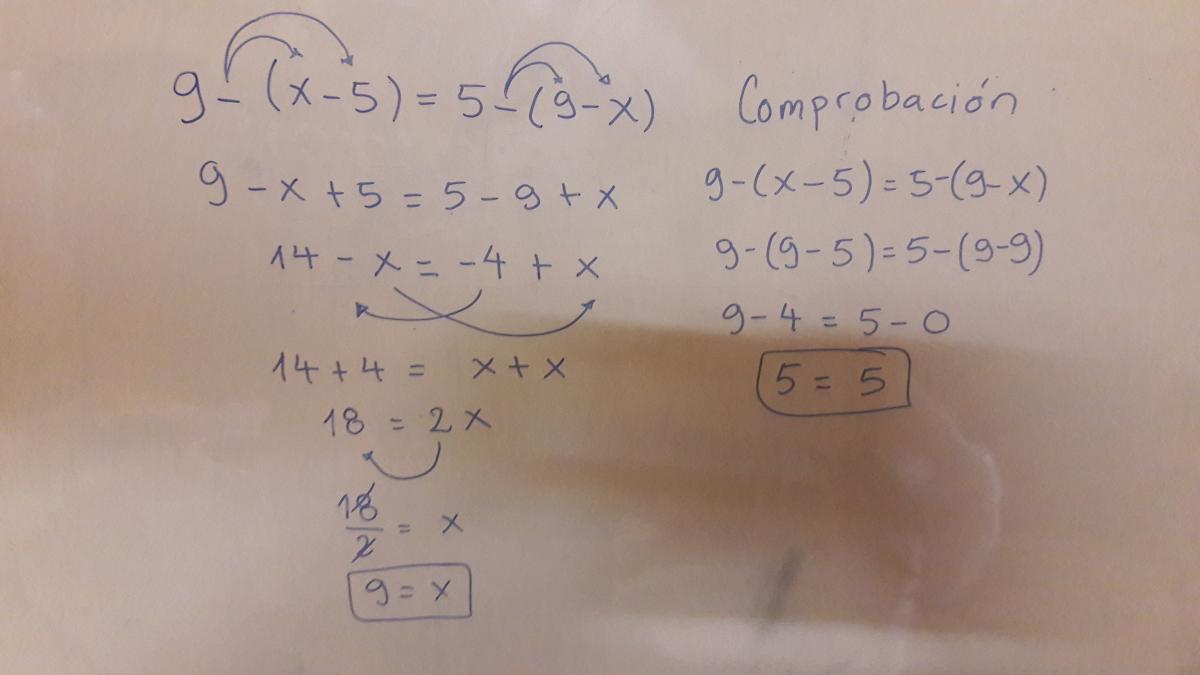 9 - (x - 5) = 5 - (9 - x)
9 - x + 5 = 5 - 9 + x
14 - x = -4 + x
14 + 4 = x + x
18 = 2x
18/2 = x
9 = x
Comprobación
9 - (x - 5) = 5 - (9 - x)
9 - (9 - 5) = 5 - (9 - 9)
9 - 4 = 5 - 0
5 = 5